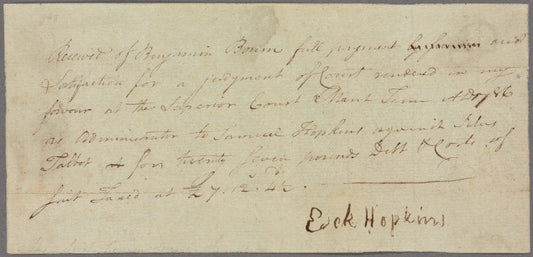 Received of Benjamin Bowen full payment and
Satisfaction for a judgment of Court rendered in my
favour at the Superior Court March Term AD 1786
as Administrator to Samuel Hopkins against Silas
Talbot for twenty seven pounds Debt & Costs of
suit Taxed at £7.12.4½
Esek Hopkins